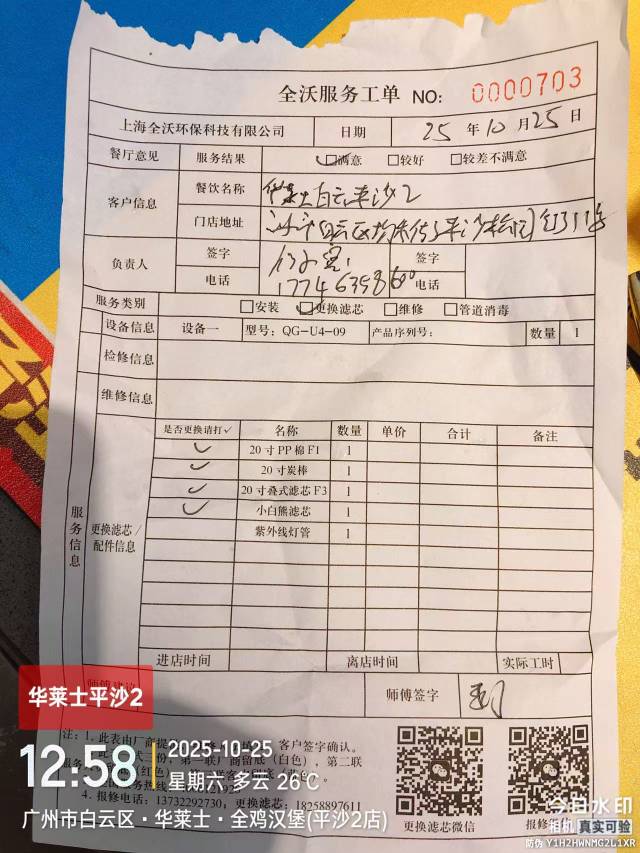 全沃服务工单 NO: 0000703
上海全沃环保科技有限公司 日期 25 年 10 月 25 日
餐厅意见 服务结果 满意 较好 较差不满意
客户信息 餐饮名称 华莱士白云平沙2
门店地址
负责人 签字 签字
电话 电话
服务类别 安装 更换滤芯 维修 管道消毒
设备信息 设备一 型号: QG-U4-09 产品序列号: 数量 1
检修信息
维修信息
服务信息
更换滤芯/配件信息
是否更换请打✓ 名称 数量 单价 合计 备注
✓ 20寸PP棉F1 1
✓ 20寸炭棒 1
✓ 20寸叠式滤芯F3 1
✓ 小白熊滤芯 1
紫外线灯管 1
进店时间 离店时间 实际工时
师傅建议 师傅签字
注: 1. 此表由厂商提 客户签字确认。
式三份, 第一联厂商留底(白色), 第二联
4. 报修电话: 13732292730, 更换滤芯: 18258897611
更换滤芯微信 报修
华莱士平沙2
12:58
2025-10-25
星期六 多云 26℃
广州市白云区·华莱士·全鸡汉堡(平沙2店)
今日水印
相机 真实可验
防伪 Y1H2HWNMG2L1XR